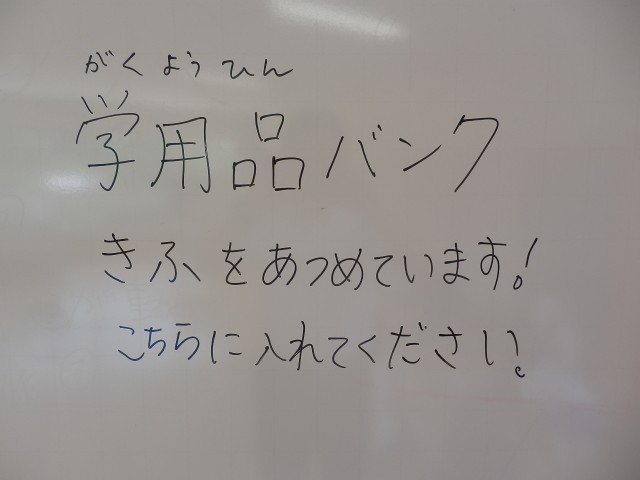 がくようひん
学用品バンク
きふをあつめています!
こちらに入れてください!